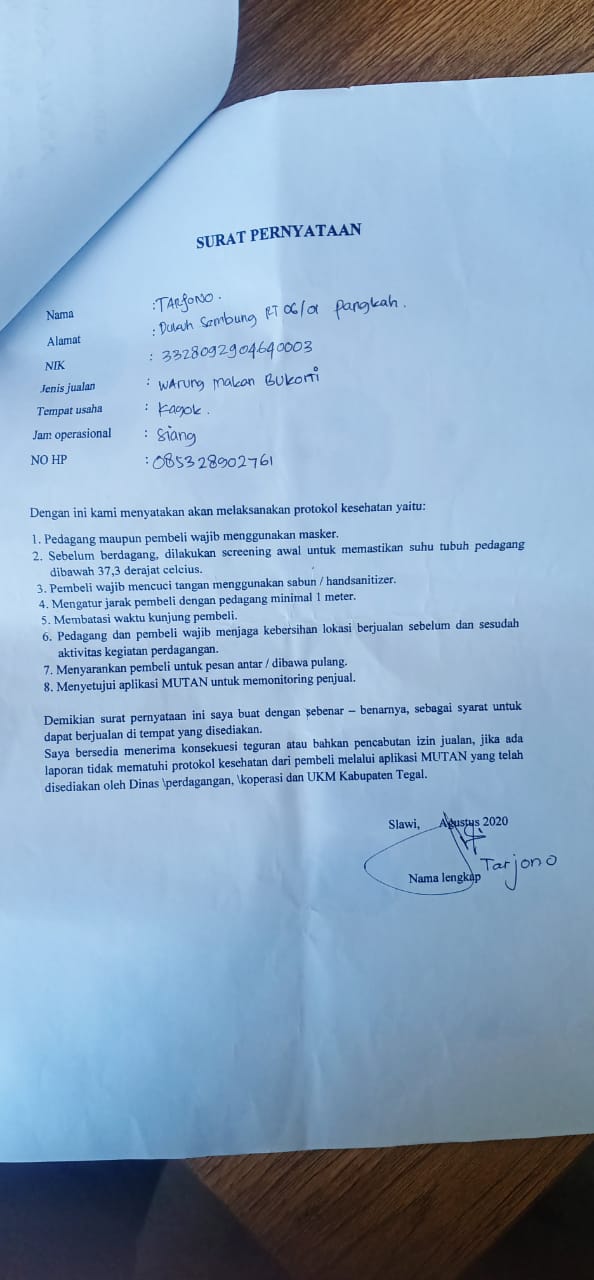 SURAT PERNYATAAN
Nama : TARJONO.
Alamat : Dukuh Sembung RT 06/01 Pangkah.
NIK : 3328092904640003
Jenis jualan : Warung Makan Bukorti
Tempat usaha : Kagok.
Jam operasional : Siang
NO HP : 085328902761
Dengan ini kami menyatakan akan melaksanakan protokol kesehatan yaitu:
1. Pedagang maupun pembeli wajib menggunakan masker.
2. Sebelum berdagang, dilakukan screening awal untuk memastikan suhu tubuh pedagang
dibawah 37,3 derajat celcius.
3. Pembeli wajib mencuci tangan menggunakan sabun / handsanitizer.
4. Mengatur jarak pembeli dengan pedagang minimal 1 meter.
5. Membatasi waktu kunjung pembeli.
6. Pedagang dan pembeli wajib menjaga kebersihan lokasi berjualan sebelum dan sesudah
aktivitas kegiatan perdagangan.
7. Menyarankan pembeli untuk pesan antar / dibawa pulang.
8. Menyetujui aplikasi MUTAN untuk memonitoring penjual.
Demikian surat pernyataan ini saya buat dengan sebenar – benarnya, sebagai syarat untuk
dapat berjualan di tempat yang disediakan.
Saya bersedia menerima konsekuesi teguran atau bahkan pencabutan izin jualan, jika ada
laporan tidak mematuhi protokol kesehatan dari pembeli melalui aplikasi MUTAN yang telah
disediakan oleh Dinas \perdagangan, \koperasi dan UKM Kabupaten Tegal.
Slawi, Agustus 2020
Tarjono
Nama lengkap